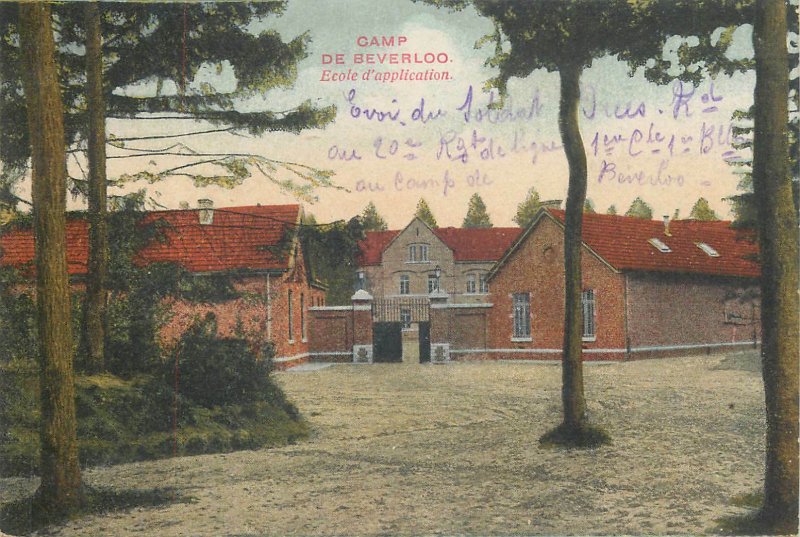 CAMP
DE BEVERLOO.
Ecole d'application.
Evoi du Soldat Dries. Rd
au 20e Rgt de ligne 1er Cie 1er Bll
au camp de Beverloo